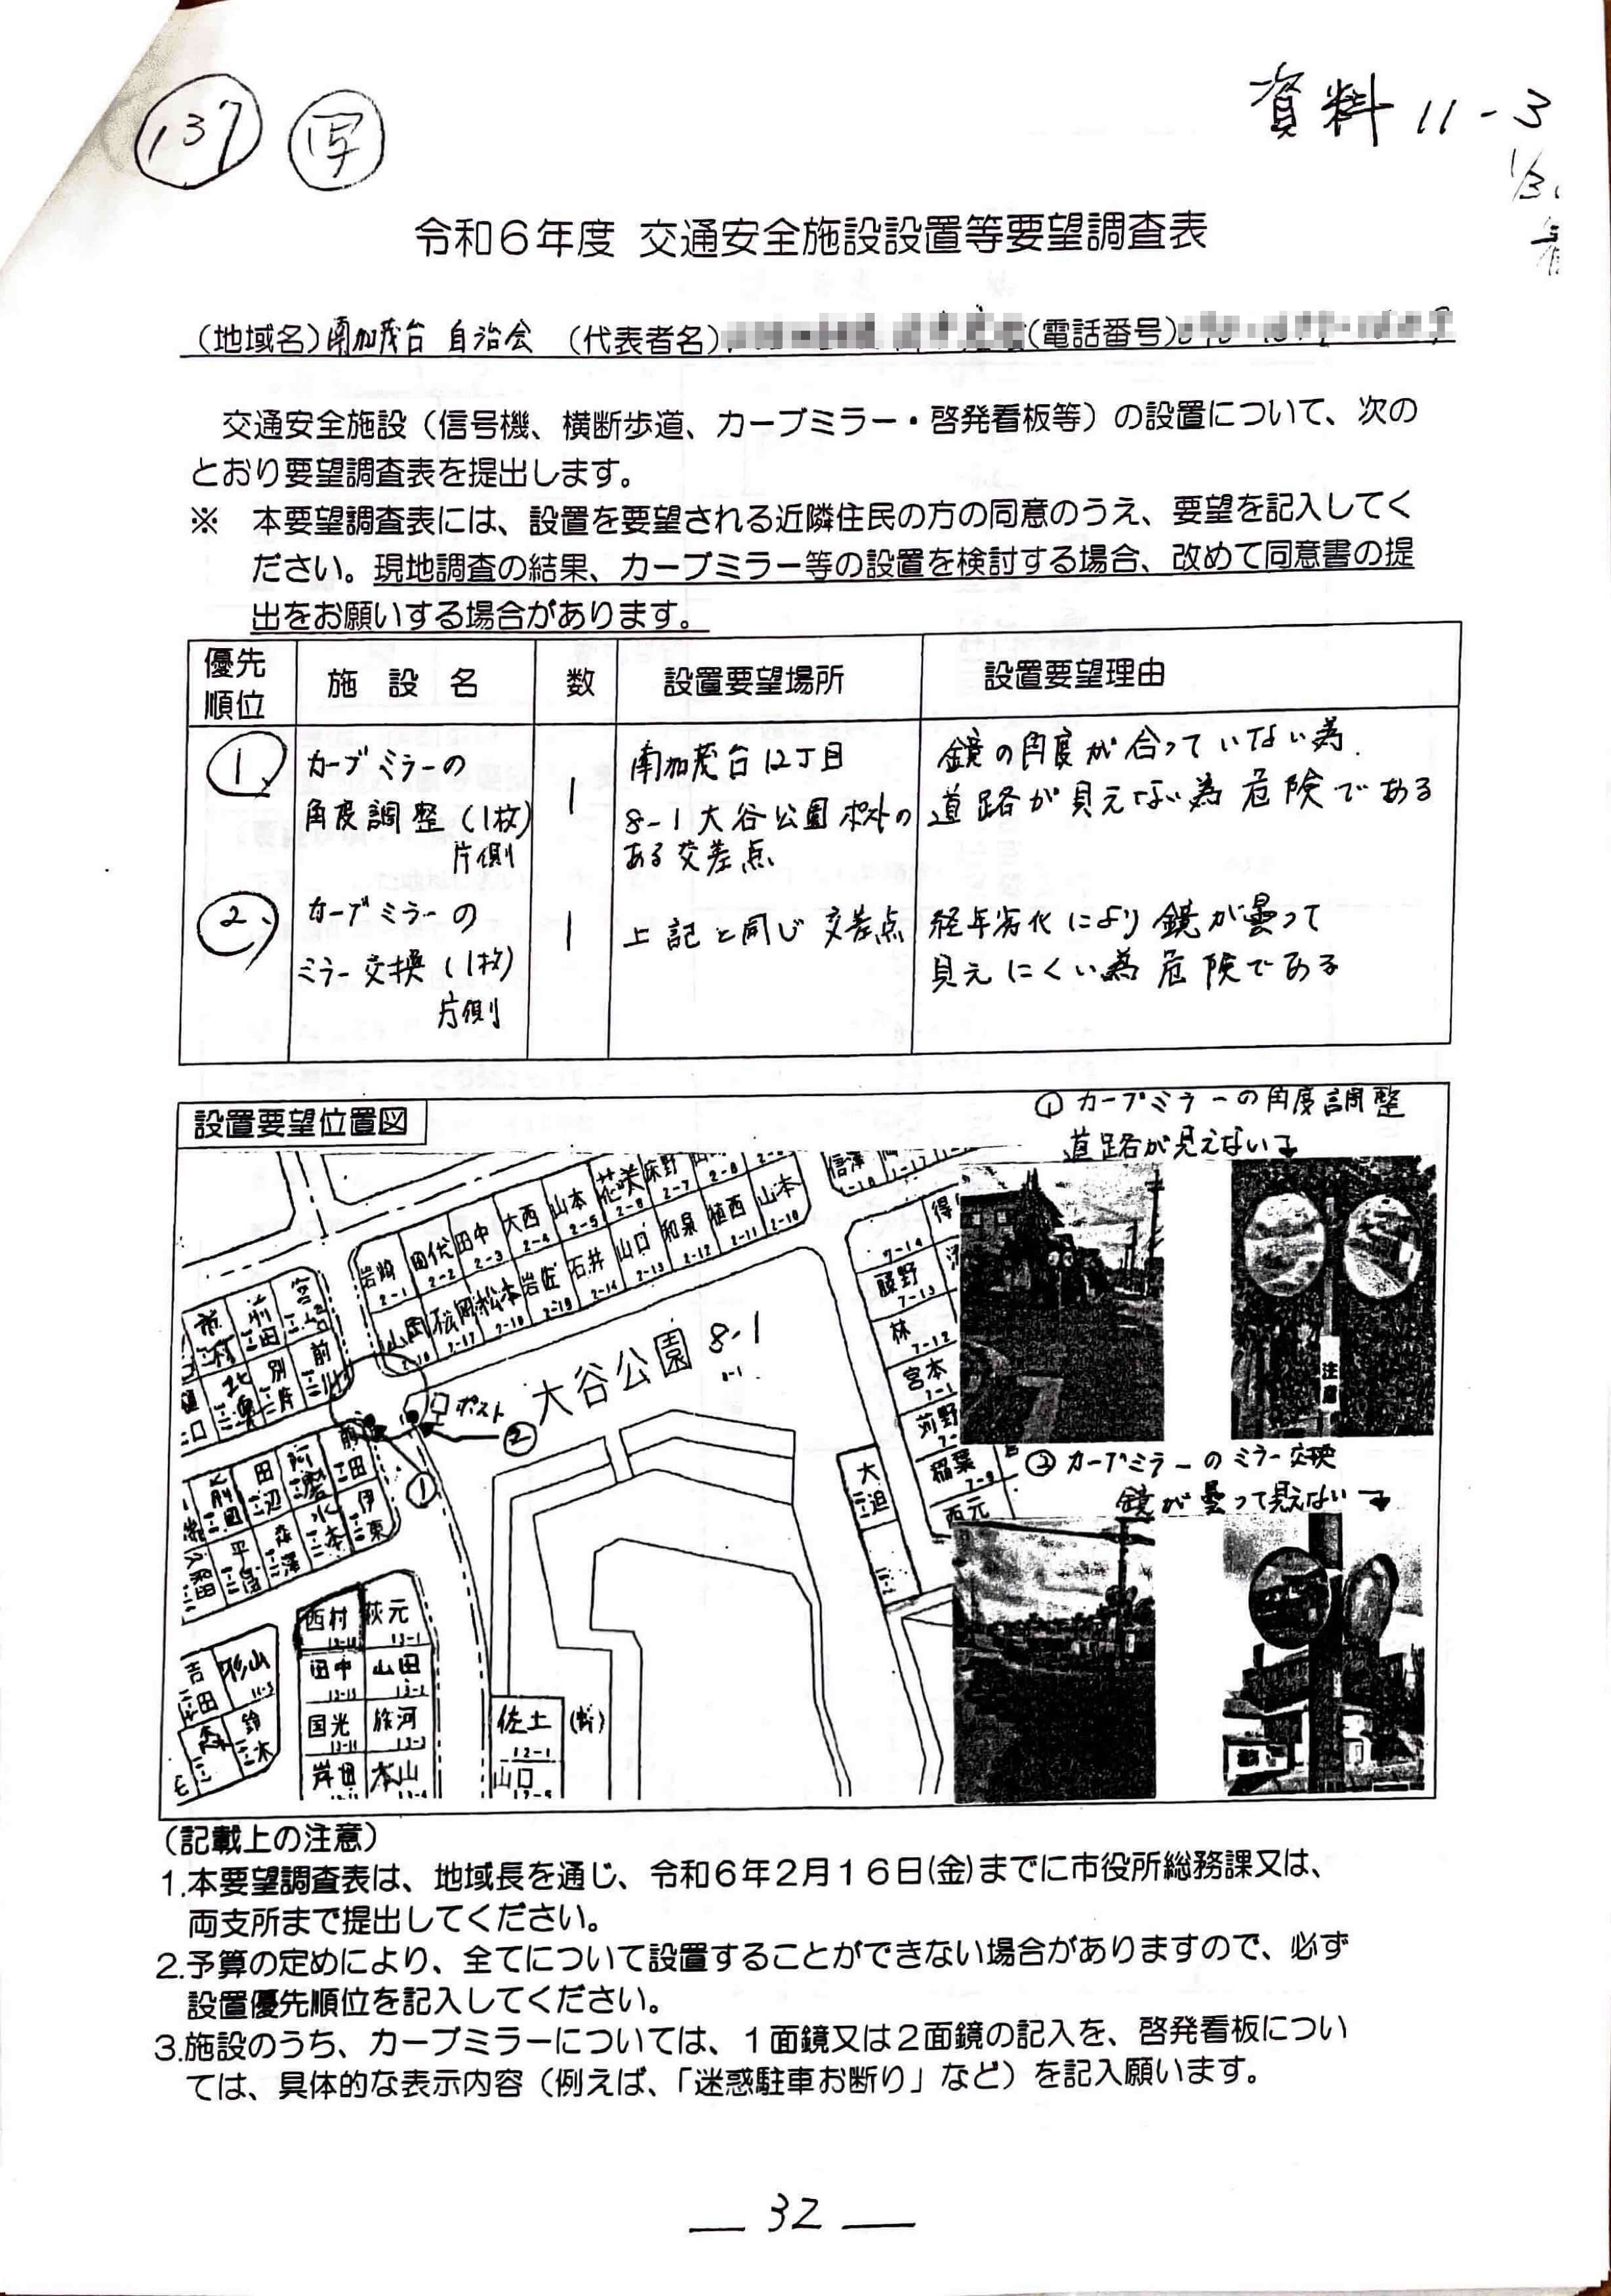 137 写
資料 11-3
令和6年度 交通安全施設設置等要望調査表
(地域名) 南加茂台 自治会 (代表者名) (電話番号)
交通安全施設(信号機、横断歩道、カーブミラー・啓発看板等)の設置について、次の
とおり要望調査表を提出します。
※ 本要望調査表には、設置を要望される近隣住民の方の同意のうえ、要望を記入してく
ださい。現地調査の結果、カーブミラー等の設置を検討する場合、改めて同意書の提
出をお願いする場合があります。
優先順位 施設名 数 設置要望場所 設置要望理由
① カーブミラーの 1 南加茂台12丁目 鏡の角度が合っていない為.
角度調整(1枚) 8-1大谷公園ポストの 道路が見えない為危険である
片側 ある交差点
② カーブミラーの 1 上記と同じ交差点 経年劣化により鏡が曇って
ミラー交換(1枚) 見えにくい為危険である
片側
設置要望位置図
① カーブミラーの角度調整
道路が見えない
岩崎 2-1
田代 2-2
田中 2-3
大西 2-4
山本 2-5
2-7
山本 2-10
植西 2-11
和泉 2-12
山口 2-13
石井 2-14
岩佐
松本
松岡 2-17
大谷公園 8-1
ポスト
②
①
7-14
藤野 7-13
林 7-12
宮本
苅野
稲葉 7-9
西元
大迫
注意
② カーブミラーのミラー交換
鏡が曇って見えない
前田
伊東
西村
荻元 13-1
田中
山田 13-2
国光
旅河 13-3
岸田
本山 13-4
杉山 11-3
吉田
鈴木
佐土 12-1
山口
(記載上の注意)
1.本要望調査表は、地域長を通じ、令和6年2月16日(金)までに市役所総務課又は、
両支所まで提出してください。
2.予算の定めにより、全てについて設置することができない場合がありますので、必ず
設置優先順位を記入してください。
3.施設のうち、カーブミラーについては、1面鏡又は2面鏡の記入を、啓発看板につい
ては、具体的な表示内容(例えば、「迷惑駐車お断り」など)を記入願います。
— 32 —